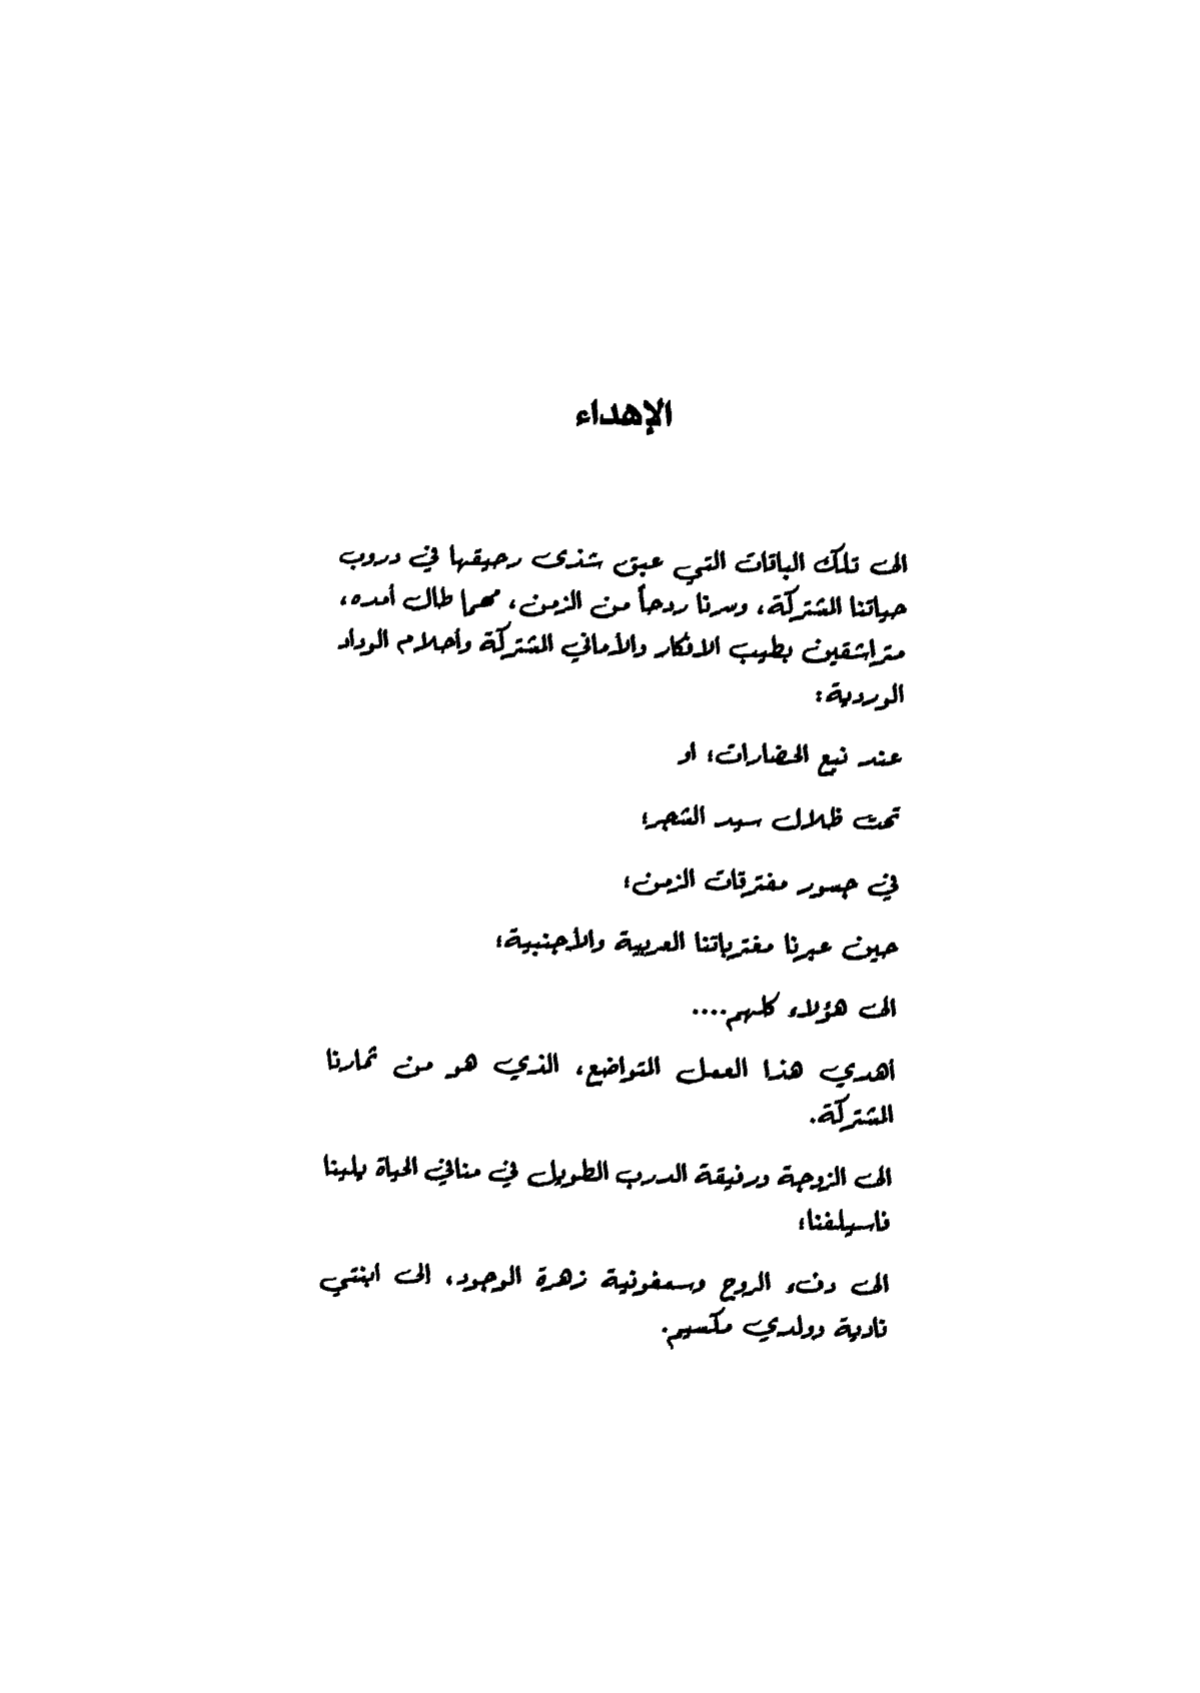 الإهداء
الى تلك الباقات التي عبق شذى رحيقها في دروب
حياتنا المشتركة، وسرنا ردحاً من الزمن، مهما طال أمده،
متراشقين بطيب الافكار والأماني المشتركة وأحلام الوداد
الوردية:
عند نبع الحضارات؛ او
تحت ظلال سيد الشجر؛
في جسور مفترقات الزمن؛
حين عبرنا مغترباتنا العربية والأجنبية؛
الى هؤلاء كلهم....
أهدي هذا العمل المتواضع، الذي هو من ثمارنا
المشتركة.
الى الزوجة ورفيقة الدرب الطويل في منافي الحياة يلينا
فاسيلفنا؛
الى دفء الروح وسمفونية زهرة الوجود، الى ابنتي
نادية وولدي مكسيم.